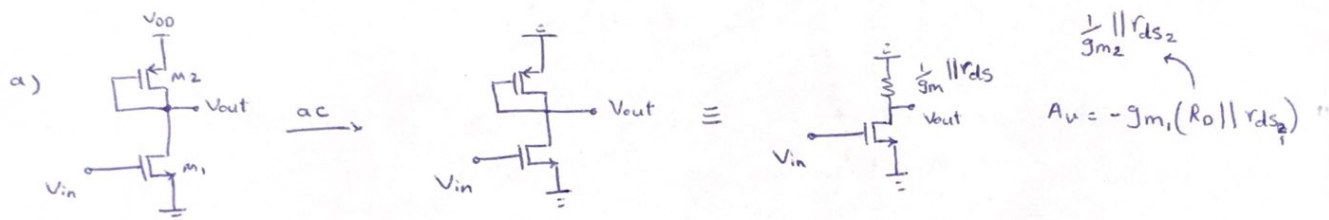 a)
VDD
M2
Vout
M1
Vin
ac
Vout
Vin
≡
1/gm || rds
Vout
Vin
1/gm2 || rds2
Av = -gm1 (RD || rds1)